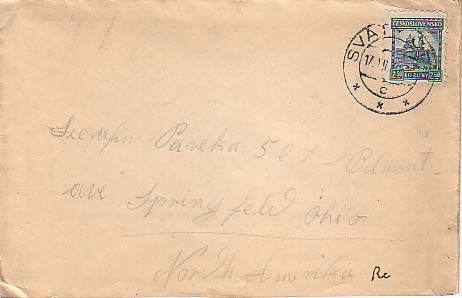 ČESKOSLOVENSKO
2.50 2.50
SVAT
17.VII
c
Szerafin Paneka 507 - Belmont
ave Springfeld Ohio
North Amerika Re